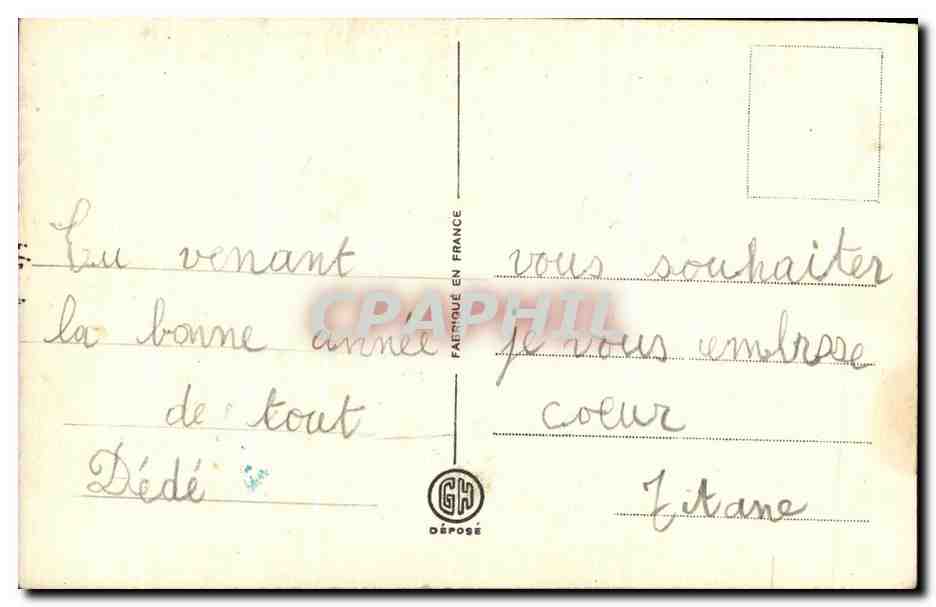 En venant vous souhaiter
la bonne année je vous embrsse
de tout coeur
Dédé Titane
FABRIQUÉ EN FRANCE
GH
DÉPOSÉ
CPAPHIL